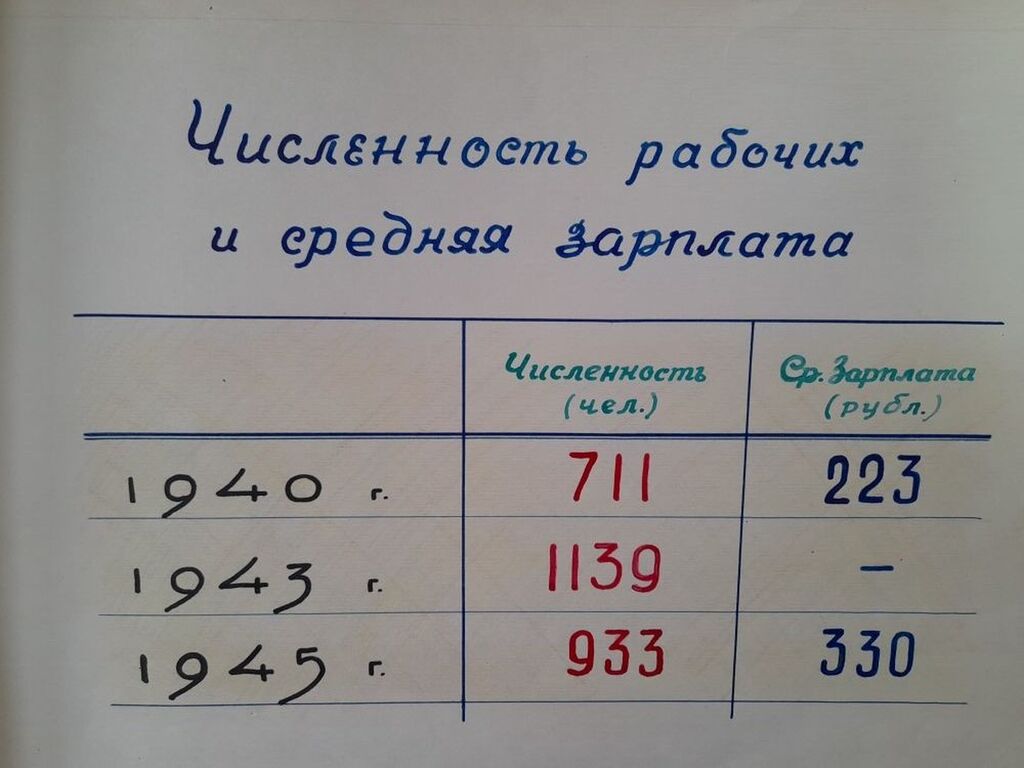 Численность рабочих
и средняя зарплата
Численность Ср. Зарплата
(чел.) (рубл.)
1940 г. 711 223
1943 г. 1139 –
1945 г. 933 330